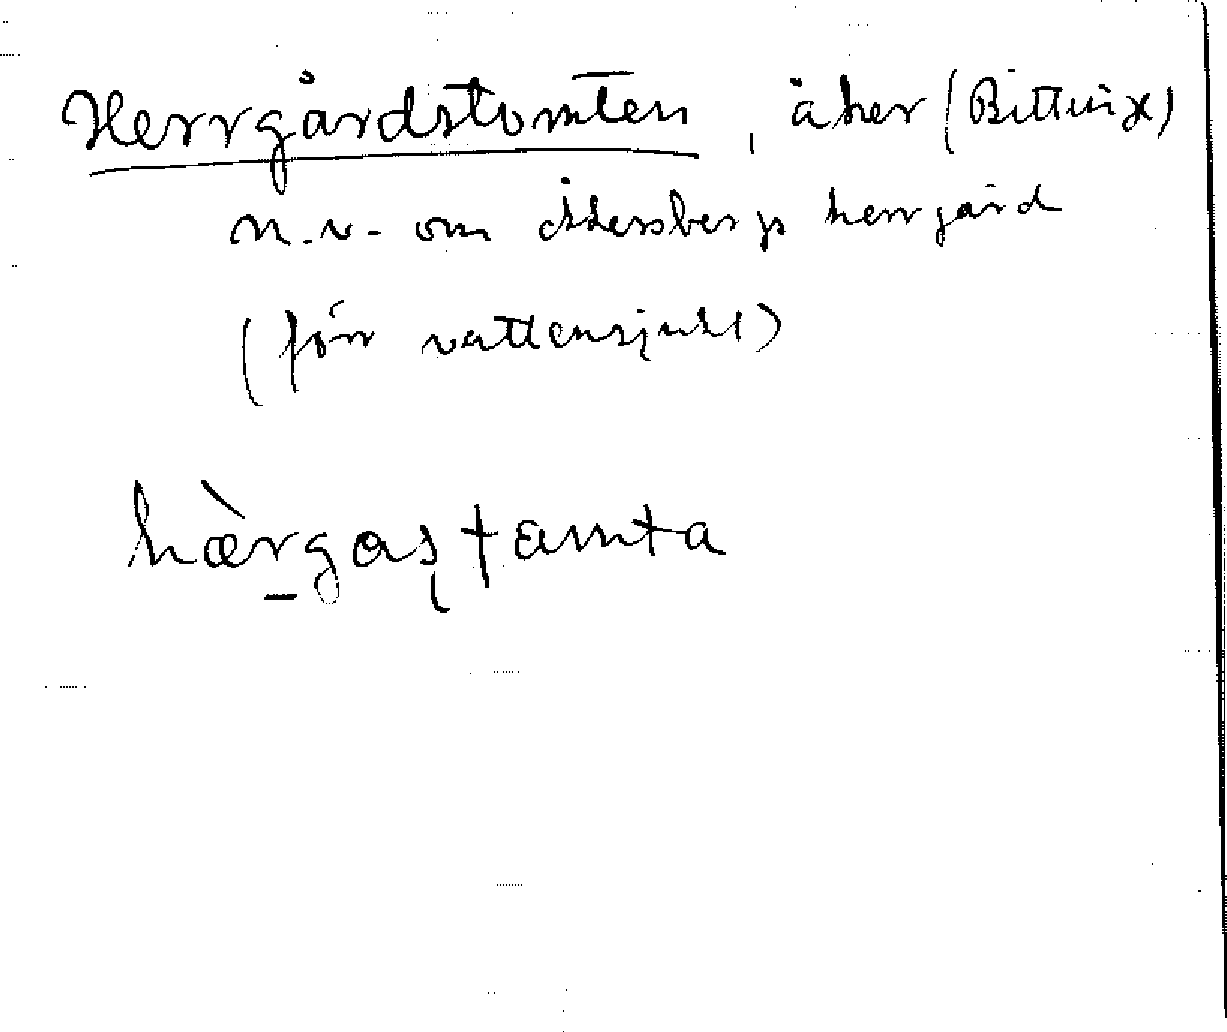 Herrgårdstomten, åker (Bittinge)
n.v. om Åkersbergs herrgård
(förr vattensjukt)
hærgaştamta